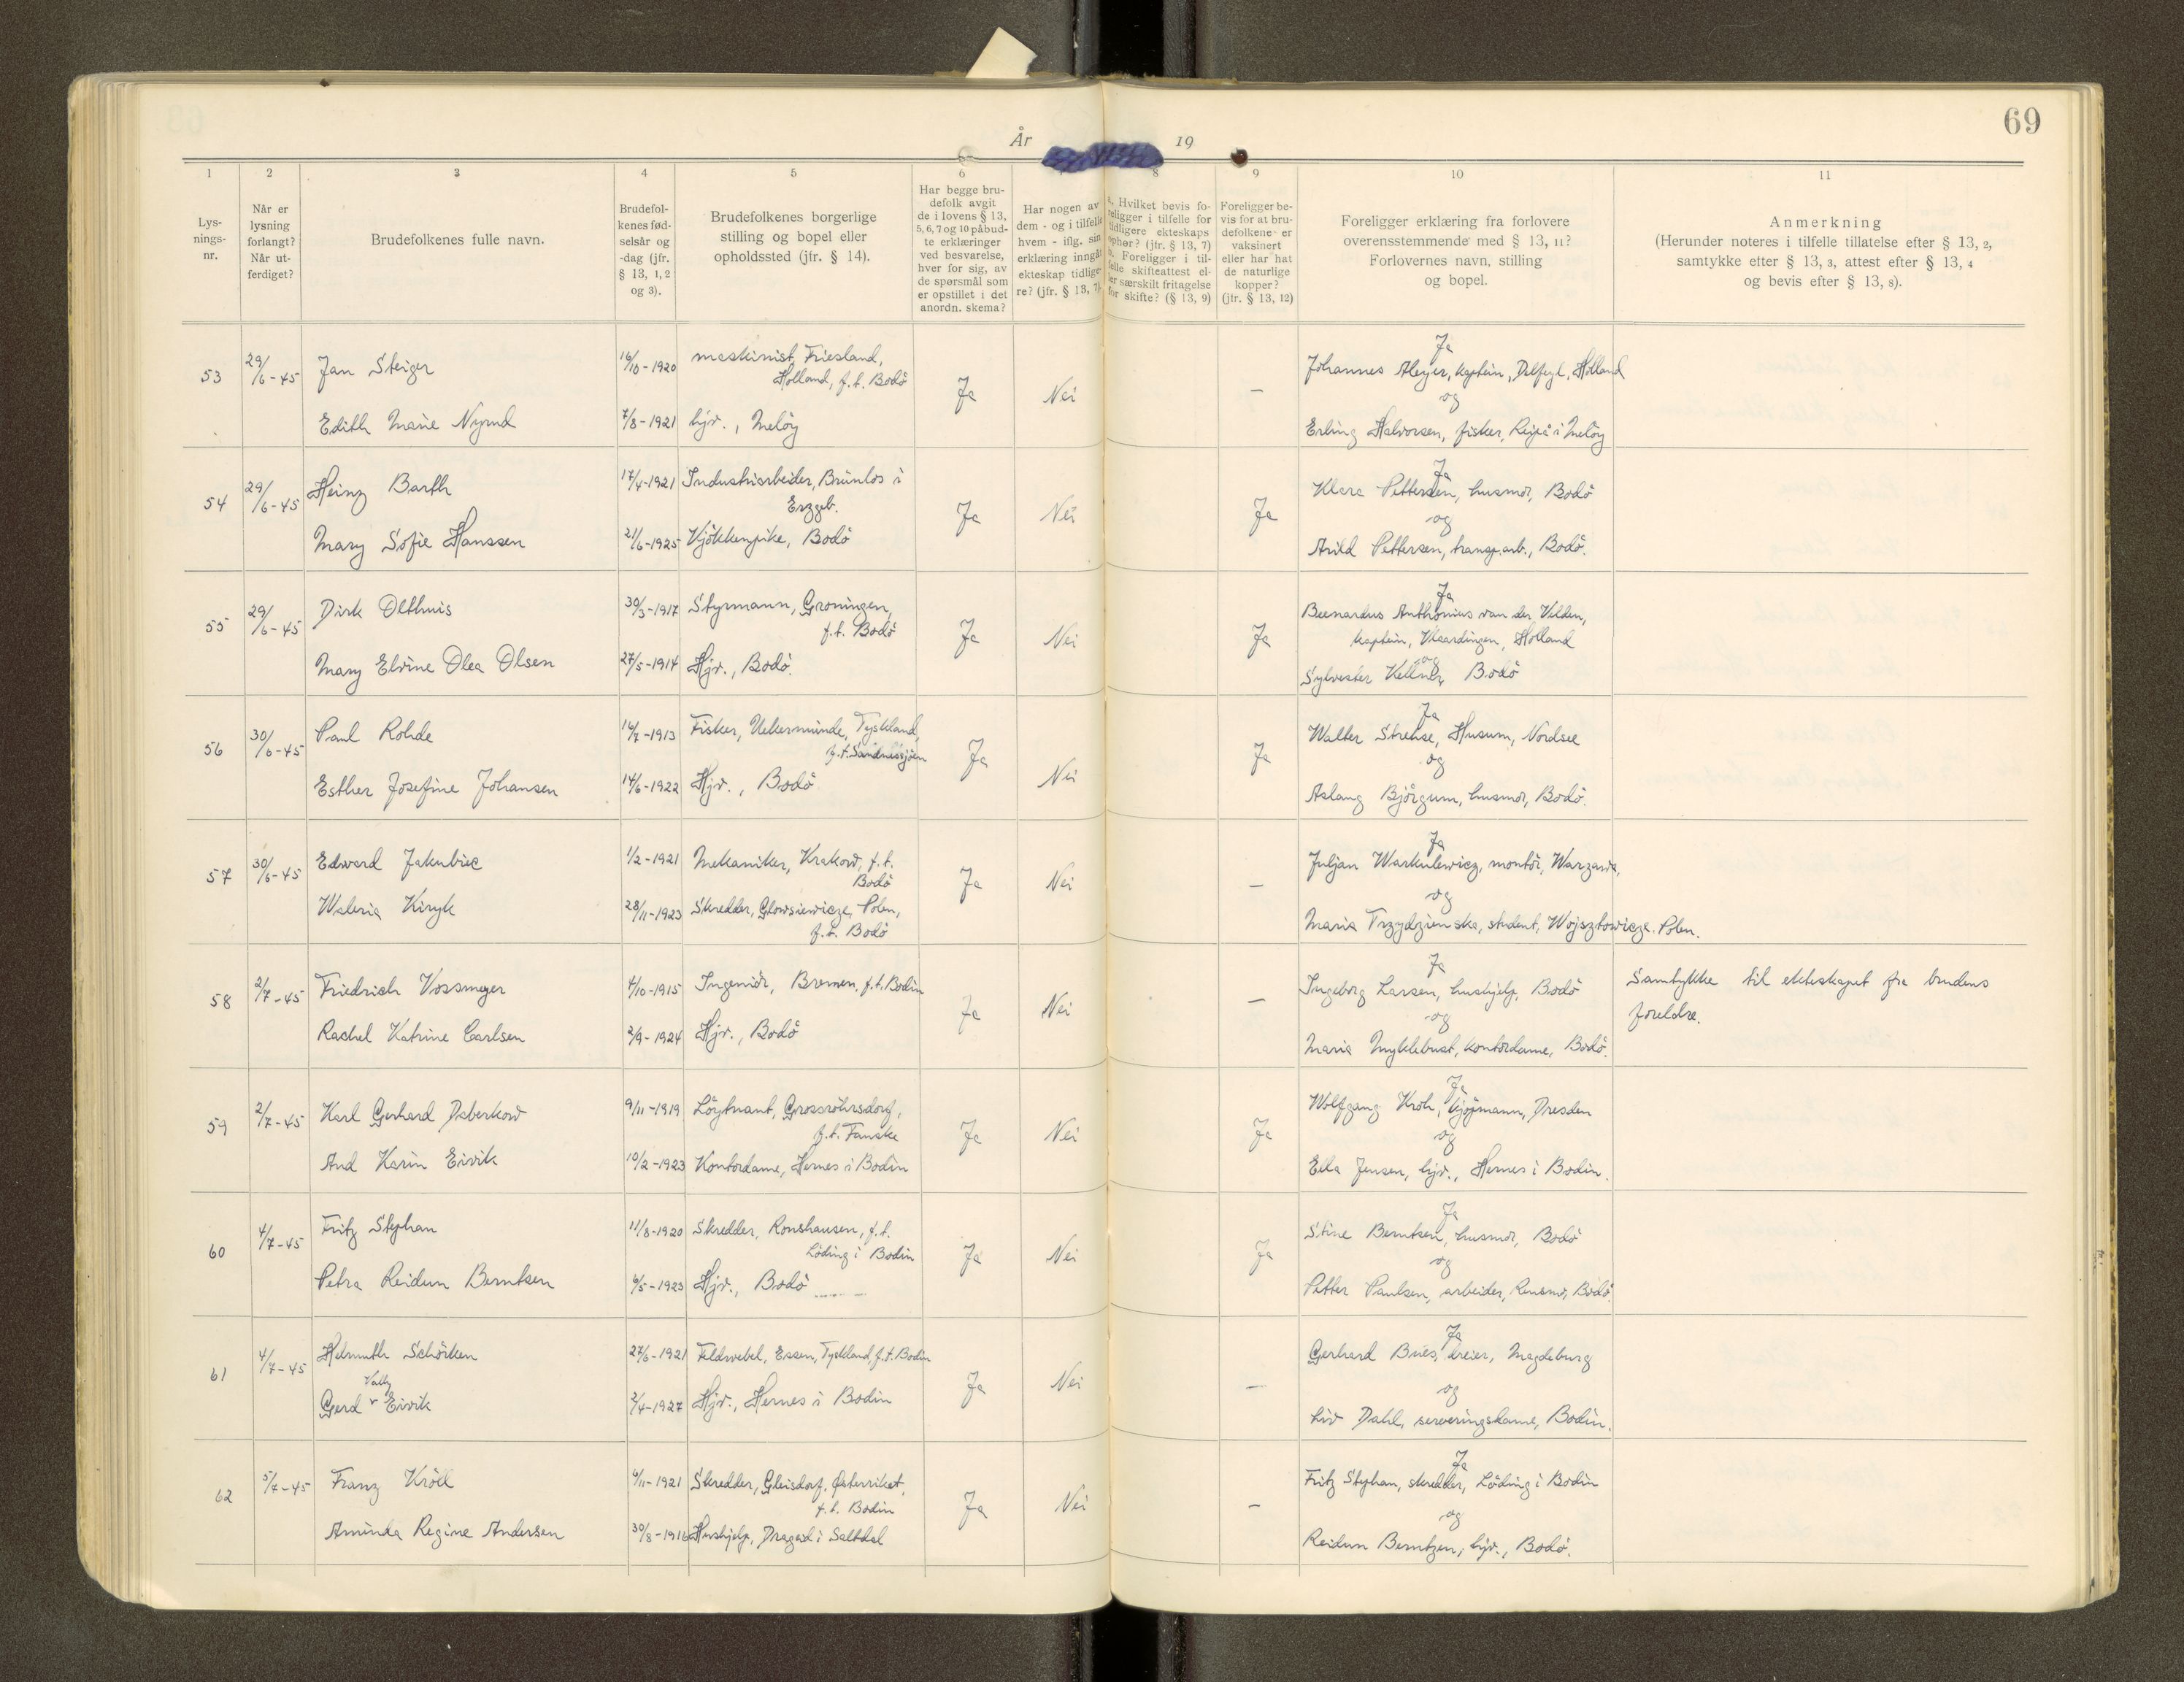 69
År 19
1 2 3 4 5 6 8 9 10 11
Lys-
nings-
nr.
Når er
lysning
forlangt?
Når ut-
ferdiget?
Brudefolkenes fulle navn.
Brudefol-
kenes fød-
selsår og
-dag (jfr.
§ 13, 1, 2
og 3).
Brudefolkenes borgerlige
stilling og bopel eller
opholdssted (jfr. § 14).
Har begge bru-
defolk avgit
de i lovens § 13,
5, 6, 7 og 10 påbud-
te erklæringer
ved besvarelse,
hver for sig, av
de spørsmål som
er opstillet i det
anordn. skema?
Har nogen av
dem - og i tilfelle
hvem - iflg. sin
erklæring inngått
ekteskap tidlige-
re? (jfr. § 13, 7)
a. Hvilket bevis fo-
religger i tilfelle for
tidligere ekteskaps
ophør? (jfr. § 13, 7)
b. Foreligger i til-
felle skifteattest el-
ler særskilt fritagelse
for skifte? (§ 13, 9)
Foreligger be-
vis for at bru-
defolkene er
vaksinert
eller har hat
de naturlige
kopper?
(jfr. § 13, 12)
Foreligger erklæring fra forlovere
overensstemmende med § 13, 11?
Forlovernes navn, stilling
og bopel.
Anmerkning
(Herunder noteres i tilfelle tillatelse efter § 13, 2,
samtykke efter § 13, 3, attest efter § 13, 4
og bevis efter § 13, 8).
53 29/6-45 Jan Steiger 16/10-1920 maskinist, Friesland,
Holland, f.t. Bodö
Edith Marie Nymd 7/8-1921 hjv., Melöy
Ja Nei –
Ja
Johannes Meyer, kaptein, Delfzyl, Holland
og
Erling Halvorsen, fisker, Reipå i Melöy
54 29/6-45 Heinz Barth 17/4-1921 Industriarbeider, Brünlos i
Erzgeb.
Mary Sofie Hanssen 21/6-1925 Kjökkenpike, Bodö
Ja Nei Ja
Ja
Klara Pettersen, husmor, Bodö
og
Arild Pettersen, transp.arb., Bodö.
55 29/6-45 Dirk Olthuis 30/3-1917 Styrmann, Groningen,
f.t. Bodö
Mary Elvine Olea Olsen 27/5-1914 Hjv., Bodö.
Ja Nei Ja
Ja
Bernardus Anthonius van der Velden,
kaptein, Vlaardingen, Holland
og
Sylvester Kellner, Bodö
56 30/6-45 Paul Rohde 16/7-1913 Fisker, Uekermünde, Tyskland,
f.t. Sandnessjöen
Esther Josefine Johansen 14/6-1922 Hjv., Bodö
Ja Nei Ja
Ja
Walter Strehse, Husum, Nordsee
og
Aslaug Bjørgum, husmor, Bodö.
57 30/6-45 Edward Jakubiec 1/2-1921 Mekaniker, Krakow, f.t.
Bodö
Waleria Kiryk 28/11-1923 Skredder, Glowsiewicze, Polen,
f.t. Bodö
Ja Nei –
Ja
Juljan Warkulewicz, montör, Warzawa,
og
Maria Trzydzienska, student, Wojsztowicze. Polen.
58 2/7-45 Friedrich Vossmeyer 4/10-1915 Ingeniör, Bremen, f.t. Bodin
Rachel Katrine Carlsen 2/9-1924 Hjv., Bodö
Ja Nei –
Ja
Ingeborg Larsen, hushjelp, Bodö
og
Maria Myklebust, kontordame, Bodö.
Samtykke til ekteskapet fra brudens
foreldre.
59 2/7-45 Karl Gerhard Daberkow 9/11-1919 Löytnant, Grossröhrsdorf,
f.t. Fauske
Aud Karin Eivik 10/2-1923 Kontordame, Hernes i Bodin
Ja Nei Ja
Ja
Wolfgang Kroh, kjöpmann, Dresden
og
Ella Jensen, hjv., Hernes i Bodin.
60 4/7-45 Fritz Stephan 11/8-1920 Skredder, Ronshausen, f.t.
Löding i Bodin
Petra Reidun Berntsen 6/5-1923 Hjv., Bodö
Ja Nei Ja
Ja
Stine Berntsen, husmor, Bodö
og
Petter Paulsen, arbeider, Rensmo, Bodö.
61 4/7-45 Helmuth Schörken 27/6-1921 Feldwebel, Essen, Tyskland, f.t. Bodin
Vally
Gerd v Eivik 2/4-1927 Hjv., Hernes i Bodin
Ja Nei –
Ja
Gerhard Bües, dreier, Magdeburg
og
Liv Dahl, serveringsdame, Bodin.
62 5/7-45 Franz Kröll 4/11-1921 Skredder, Gleisdorf, Østerriket,
f.t. Bodin
Aminda Regine Andersen 30/8-1916 Hushjelp, Drageid i Saltdal
Ja Nei –
Ja
Fritz Stephan, skredder, Löding i Bodin
og
Reidun Berntzen, hjv., Bodö.